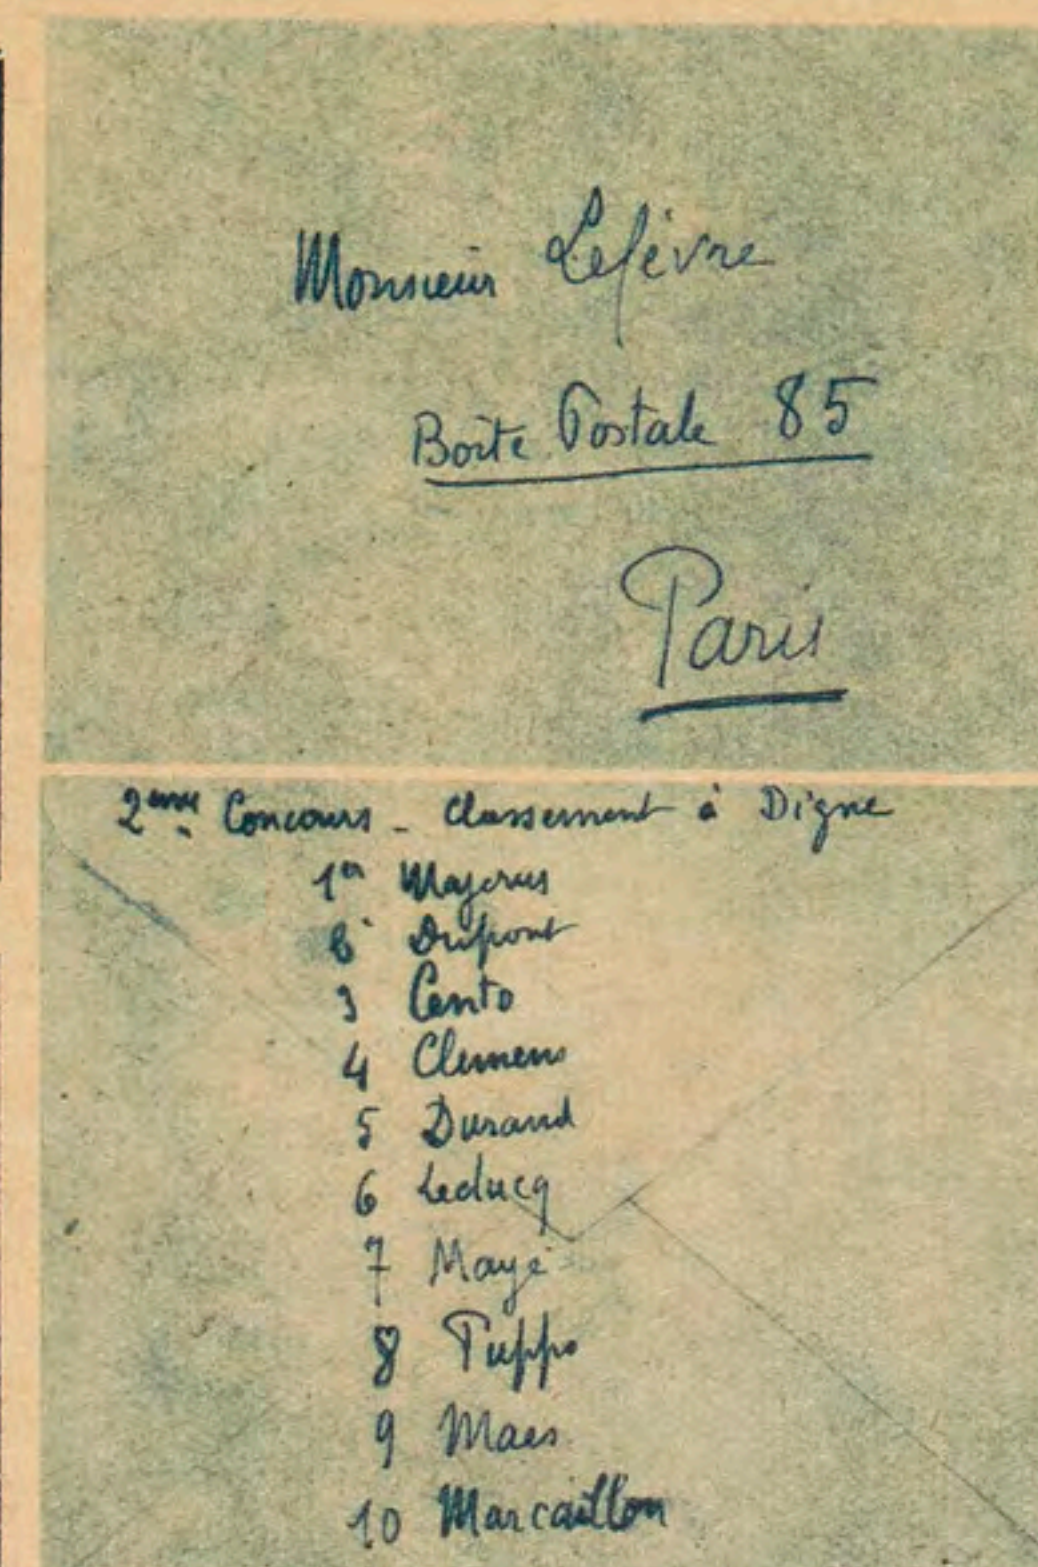 Monsieur Lefèvre
Boîte Postale 85
Paris
2ème Concours - Classement à Digne
1er Majerus
Dupont
3 Cento
4 Clemens
5 Durand
6 Leducq
7 Mayé
8 Puppo
9 Maes
10 Marcaillou